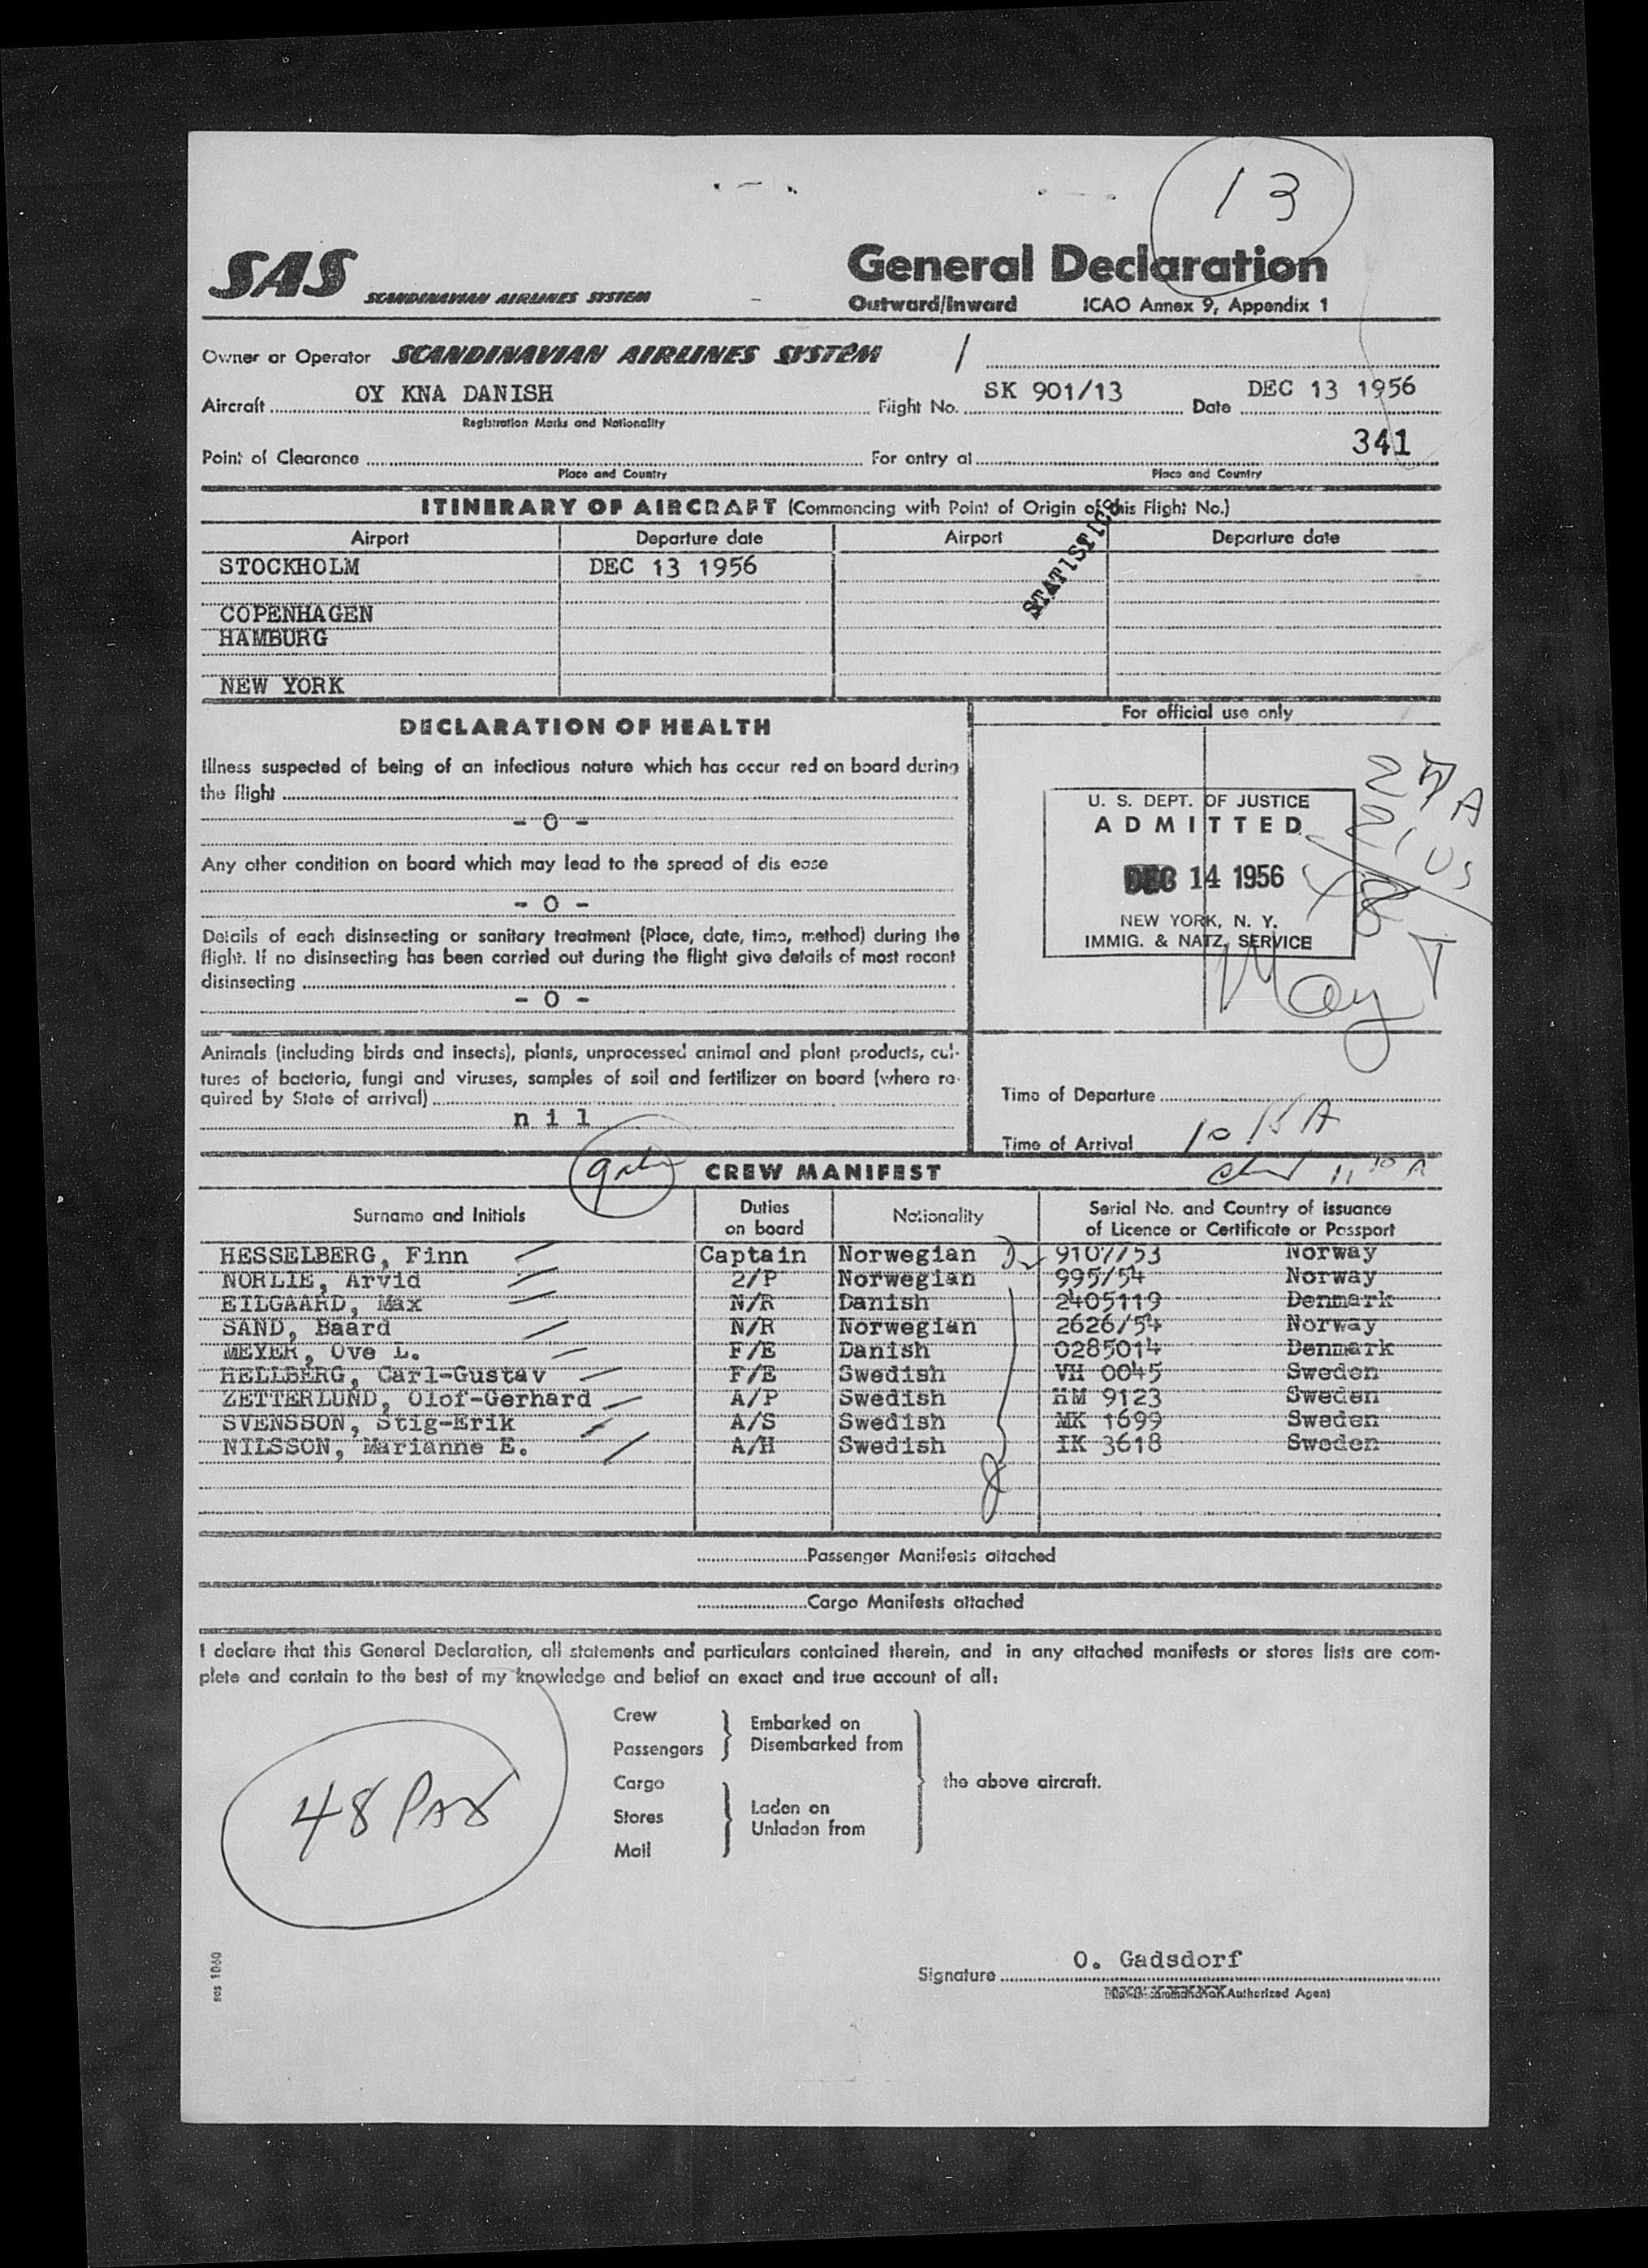 13
SAS SCANDINAVIAN AIRLINES SYSTEM
General Declaration
Outward/Inward ICAO Annex 9, Appendix 1
Owner or Operator SCANDINAVIAN AIRLINES SYSTEM /
Aircraft OY KNA DANISH Flight No. SK 901/13 Date DEC 13 1956
Registration Marks and Nationality
341
Point of Clearance For entry at
Place and Country Place and Country
ITINERARY OF AIRCRAFT (Commencing with Point of Origin of this Flight No.)
Airport Departure date Airport Departure date
STATISTICS
STOCKHOLM DEC 13 1956
COPENHAGEN
HAMBURG
NEW YORK
DECLARATION OF HEALTH
Illness suspected of being of an infectious nature which has occur red on board during
the flight
- 0 -
Any other condition on board which may lead to the spread of dis ease
- 0 -
Details of each disinsecting or sanitary treatment (Place, date, time, method) during the
flight. If no disinsecting has been carried out during the flight give details of most recent
disinsecting
- 0 -
Animals (including birds and insects), plants, unprocessed animal and plant products, cul-
tures of bacteria, fungi and viruses, samples of soil and fertilizer on board (where re-
quired by State of arrival)
n i l
For official use only
U. S. DEPT. OF JUSTICE
ADMITTED
DEC 14 1956
NEW YORK, N. Y.
IMMIG. & NATZ. SERVICE
27 A
21 US
48
May
Time of Departure
Time of Arrival 10 15 A
CREW MANIFEST
Surname and Initials Duties on board Nationality Serial No. and Country of issuance of Licence or Certificate or Passport
HESSELBERG, Finn Captain Norwegian 9107/53 Norway
NORLIE, Arvid 2/P Norwegian 995/54 Norway
EILGAARD, Max N/R Danish 2405119 Denmark
SAND, Baard N/R Norwegian 2626/54 Norway
MEYER, Ove L. F/E Danish 0285014 Denmark
HELLBERG, Carl-Gustav F/E Swedish VH 0045 Sweden
ZETTERLUND, Olof-Gerhard A/P Swedish HM 9123 Sweden
SVENSSON, Stig-Erik A/S Swedish MK 1699 Sweden
NILSSON, Marianne E. A/H Swedish IK 3618 Sweden
Passenger Manifests attached
Cargo Manifests attached
I declare that this General Declaration, all statements and particulars contained therein, and in any attached manifests or stores lists are com-
plete and contain to the best of my knowledge and belief an exact and true account of all:
Crew
Passengers
Embarked on
Disembarked from
Cargo
Stores
Mail
Laden on
Unladen from
the above aircraft.
48 PAX
sas 1060
Signature O. Gadsdorf
Authorized Agent